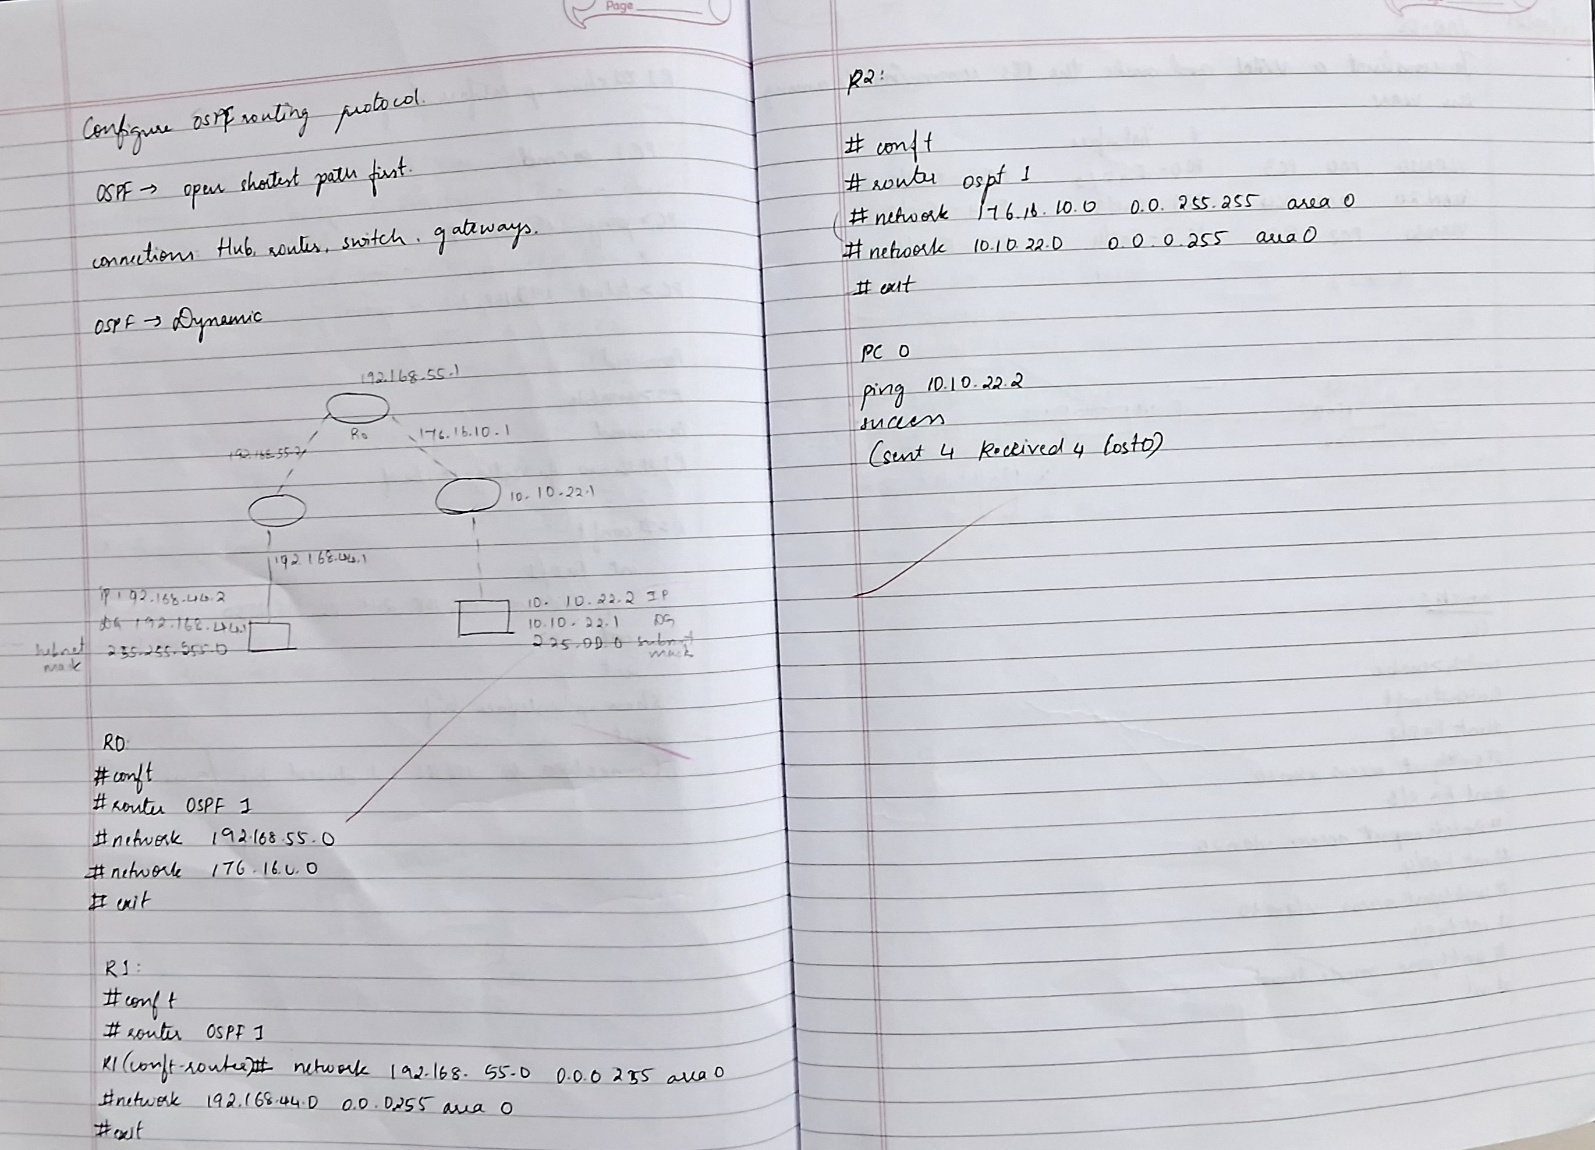 Page
Configure OSPF routing protocol.
OSPF → open shortest path first.
connections: Hub, router, switch, gateways.
OSPF → Dynamic
192.168.55.1
R0
176.16.10.1
192.168.55.2
10.10.22.1
192.168.44.1
IP 192.168.44.2
DG 192.168.44.1
subnet mask 255.255.255.0
10.10.22.2 IP
10.10.22.1 DG
225.00.0 subnet mask
R0:
#conft
#router OSPF 1
#network 192.168.55.0
#network 176.16.0.0
#exit
R1:
#conft
#router OSPF 1
R1(conft-router)# network 192.168.55.0 0.0.0 255 area 0
#network 192.168.44.0 0.0.0.255 area 0
#exit
R2:
#conft
#router ospf 1
#network 176.16.10.0 0.0.255.255 area 0
#network 10.10.22.0 0.0.0.255 area 0
#exit
PC 0
ping 10.10.22.2
success
(sent 4 Received 4 lost 0)